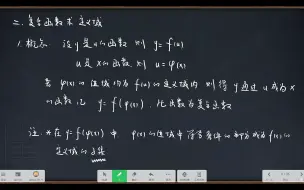 二、复合函数求定义域
1. 概念: 设 y 是 u 的函数 对 y=f(u)
u 是 x 的函数 对 u=φ(x)
若 φ(x) 的值域 为 f(u) 的定义域内 对得 y 通过 u 成为 x
的函数 y=f(φ(x)), 此函数为复合函数
注: 在 y=f(φ(x)) 中 φ(x) 的值域中 部分成为 f(u) 的
定义域的子集